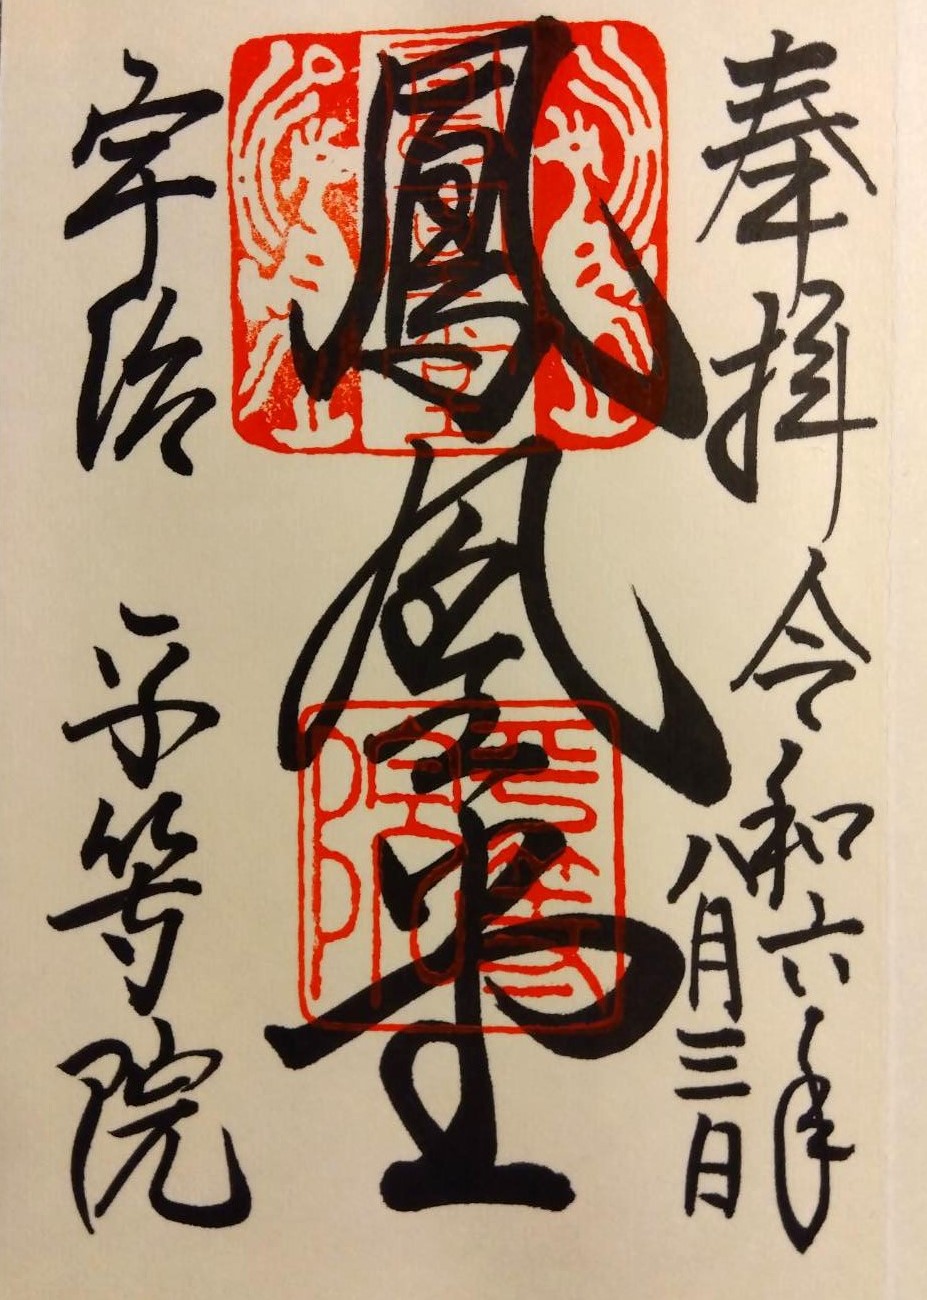 奉拝 令和六年
八月三日
鳳凰堂
鳳凰堂
平等院
宇治 平等院